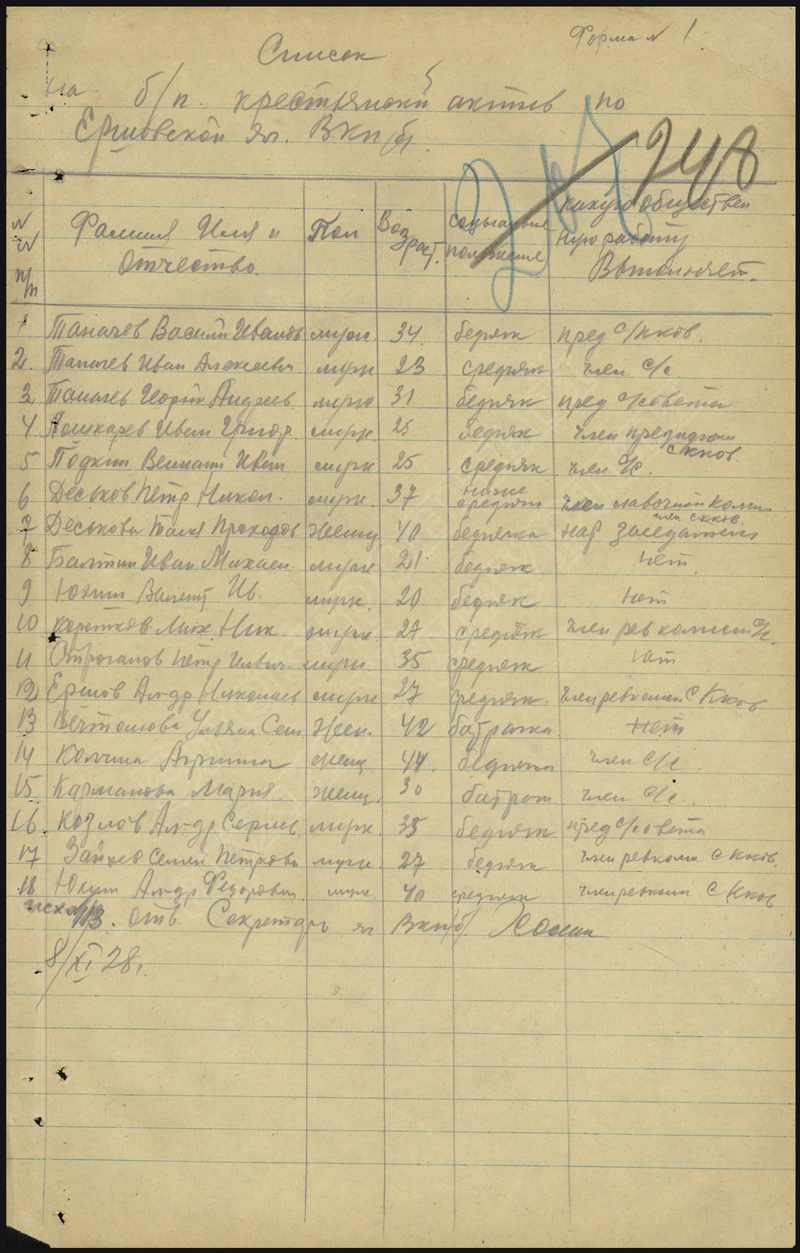 Форма № 1
Список
на б/п. крестьянский актив по
Ершовской яч. ВКП/б/.
248
№ № п/п Фамилия Имя и Отчество. Пол Возраст. Социальное положение какую обществен ную работу Выполняет.
1 Таначев Василий Иванов мужч. 34. бедняк пред с/кков.
2. Таначев Иван Алексеевич мужч 23 средняк член с/с
3 Таначев Георгий Андреев мужч 31 бедняк пред с/совета
4 Иван Григор. мужч. 25 бедняк член президиума с кков
5 Иван мужч 25 средняк член с/с.
6 Деськов Петр Никол. мужч. 37 ниже средняк член лавочной комис член с кков.
7 Деськова Прохоров женщ 40 беднячка нар заседатель
8 Иван Михаил. мужч 21 бедняк нет.
9 Юкин Ив. мужч. 20 бедняк нет
10 Коротков Мих. Ник мужч. 27 средняк член рев комисии с/с.
11 Строганов Петр мужч 35 средняк нет
12 Ершов Ал-др Николаев мужч 27 средняк. член ревкомис с Кков
13 Ульяна Сем жен. 42 батрачка нет
14 Колчина женщ 44. беднячка член с/с.
15 Мария женщ. 30 батрач член с/с.
16. Козлов Ал-др Сергеев мужч. 35 бедняк пред с/совета
17 Зайцев Семен Петрович мужч. 27 бедняк член ревкоми с кков.
18 Юкин Ал-др Федорович мужч 40 средняк член ревкоми с Кков
исх №13. отв Секретарь яч ВКП/б/
8/XI 28г.